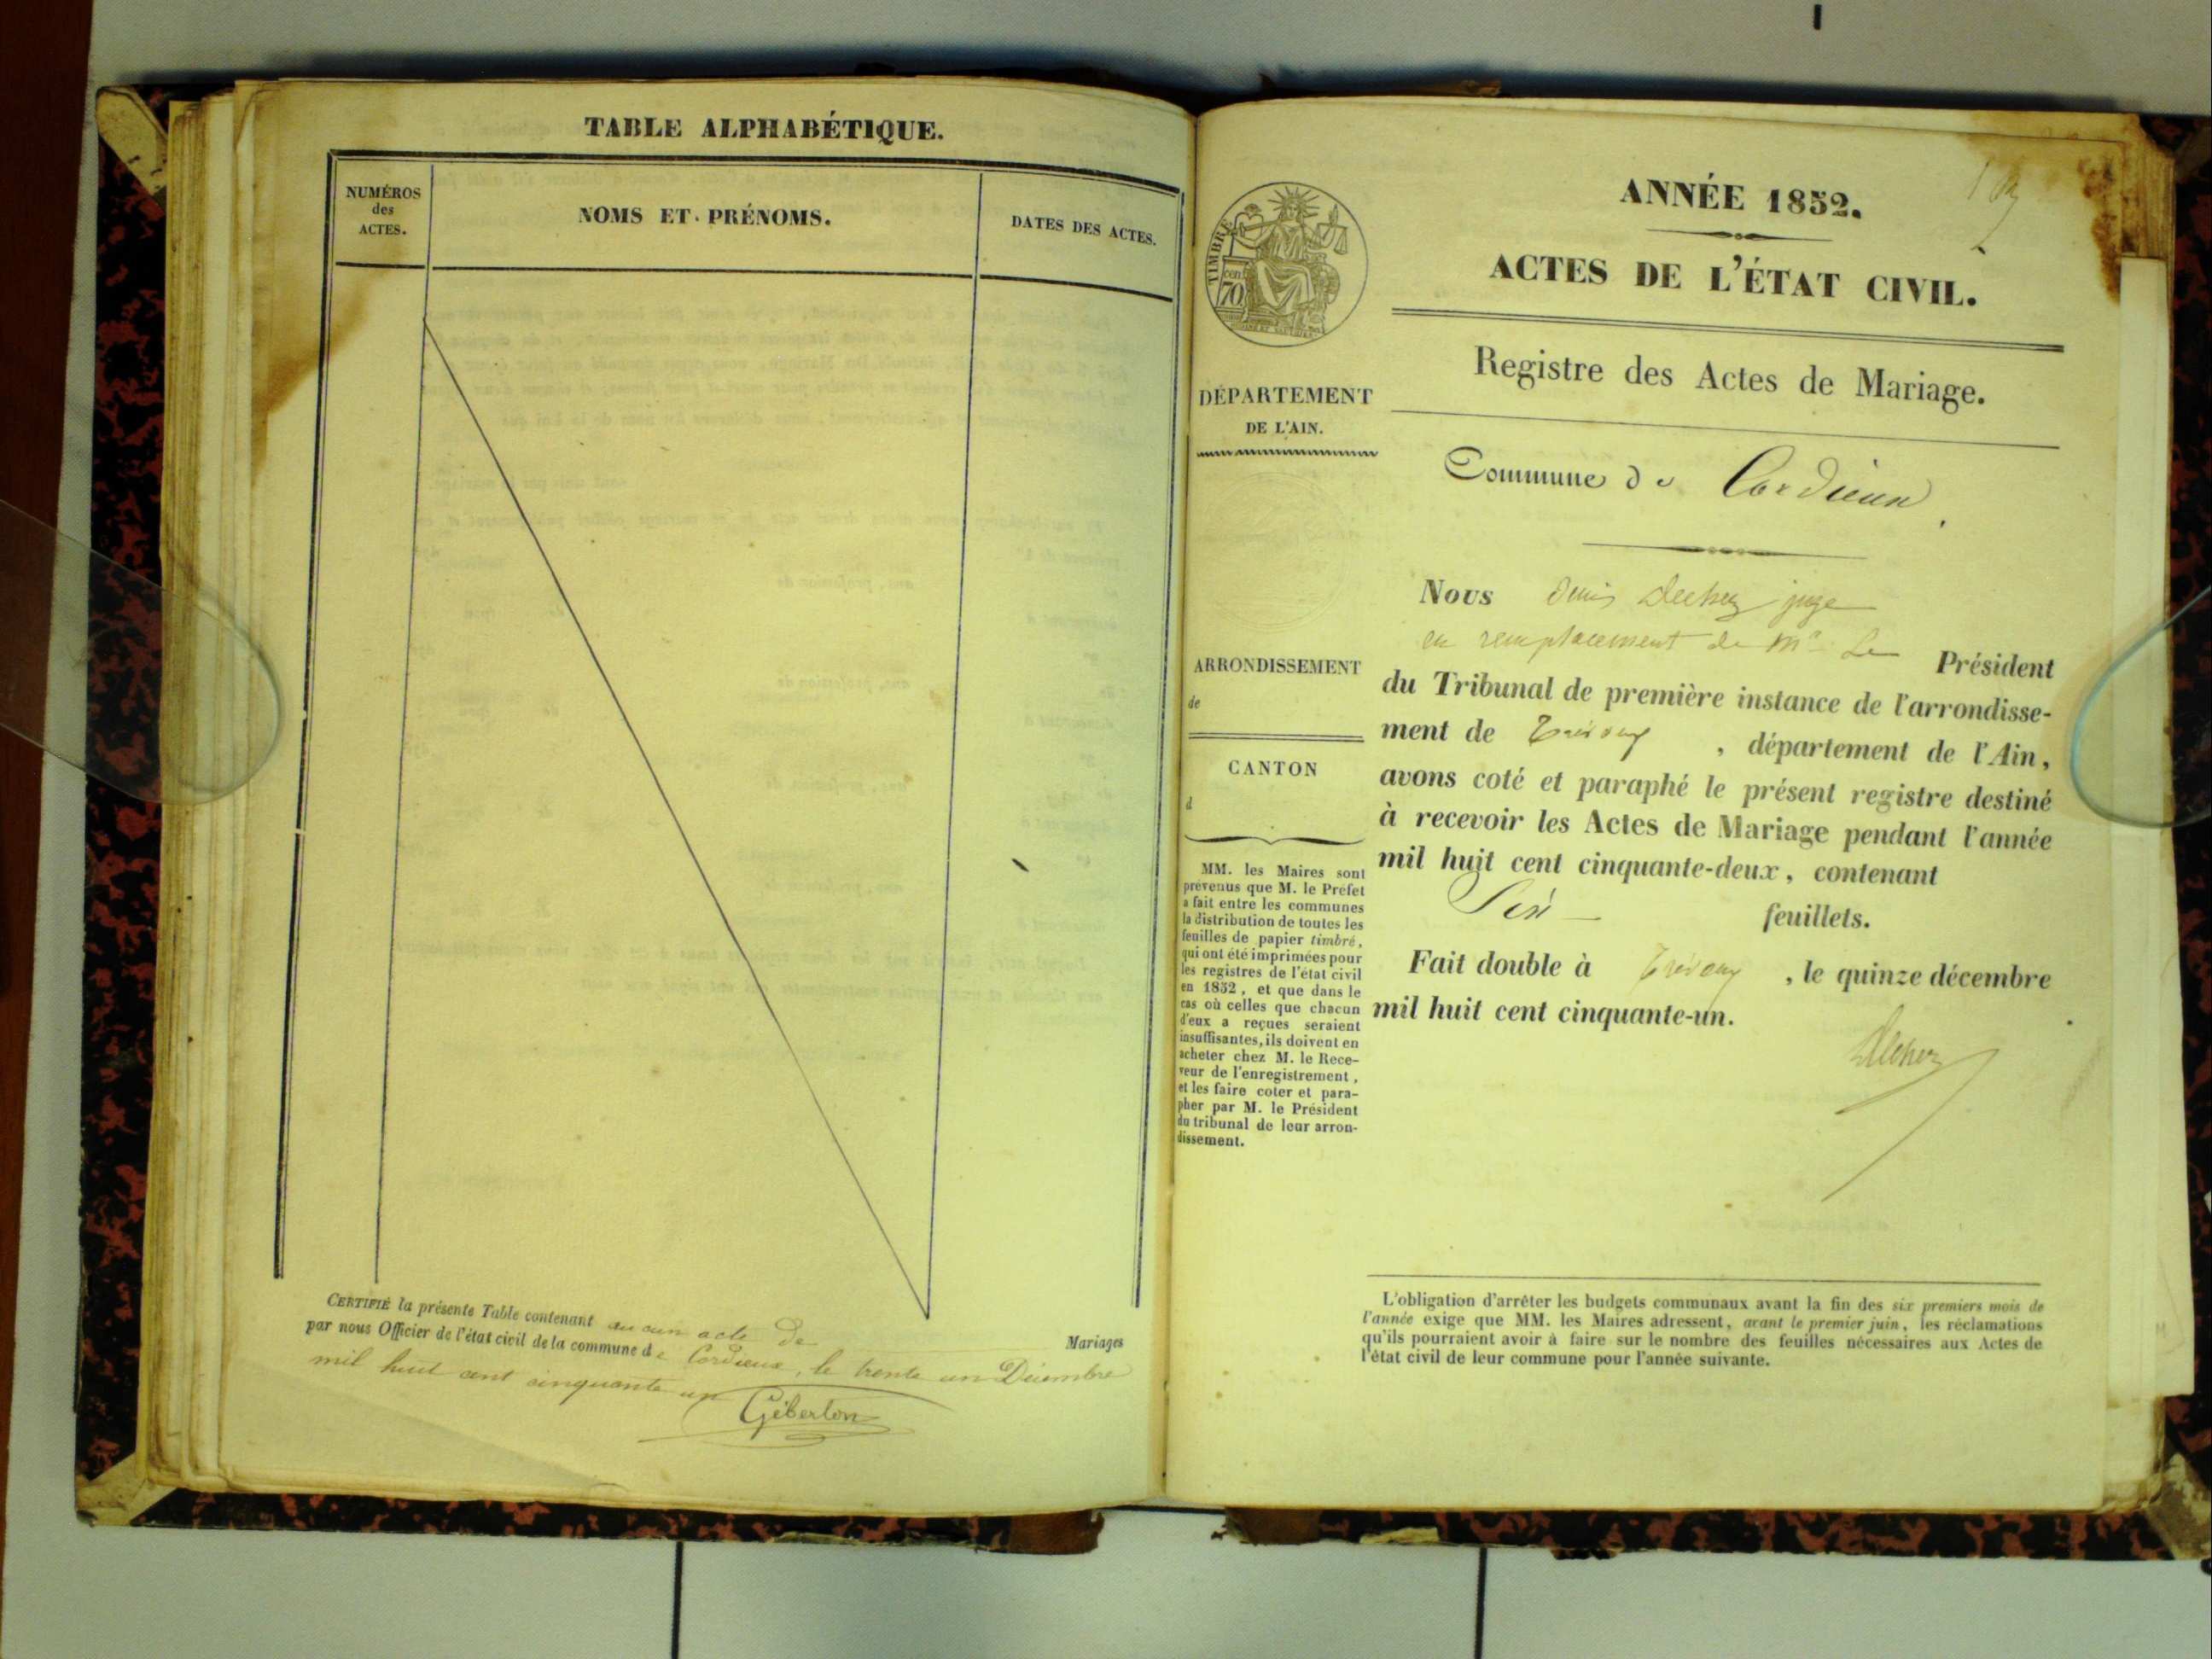 TABLE ALPHABÉTIQUE.
NUMÉROS
des
ACTES.
NOMS ET PRÉNOMS.
DATES DES ACTES.
CERTIFIÉ la présente Table contenant aucun acte de Mariages
par nous Officier de l'état civil de la commune de Cordieux, le trente un Décembre
mil huit cent cinquante un
Giberton
TIMBRE
70
cen.
DÉPARTEMENT
DE L'AIN.
ARRONDISSEMENT
de
CANTON
d
MM. les Maires sont
prévenus que M. le Préfet
a fait entre les communes
la distribution de toutes les
feuilles de papier timbré,
qui ont été imprimées pour
les registres de l'état civil
en 1852, et que dans le
cas où celles que chacun
d'eux a reçues seraient
insuffisantes, ils doivent en
acheter chez M. le Rece-
veur de l'enregistrement,
et les faire coter et para-
pher par M. le Président
du tribunal de leur arron-
dissement.
ANNÉE 1852.
ACTES DE L'ÉTAT CIVIL.
Registre des Actes de Mariage.
Commune de Cordieux
Nous juge
en remplacement de Mr Le Président
du Tribunal de première instance de l'arrondisse-
ment de Trévoux, département de l'Ain,
avons coté et paraphé le présent registre destiné
à recevoir les Actes de Mariage pendant l'année
mil huit cent cinquante-deux, contenant
feuillets.
Fait double à Trévoux, le quinze décembre
mil huit cent cinquante-un.
L'obligation d'arrêter les budgets communaux avant la fin des six premiers mois de
l'année exige que MM. les Maires adressent, avant le premier juin, les réclamations
qu'ils pourraient avoir à faire sur le nombre des feuilles nécessaires aux Actes de
l'état civil de leur commune pour l'année suivante.